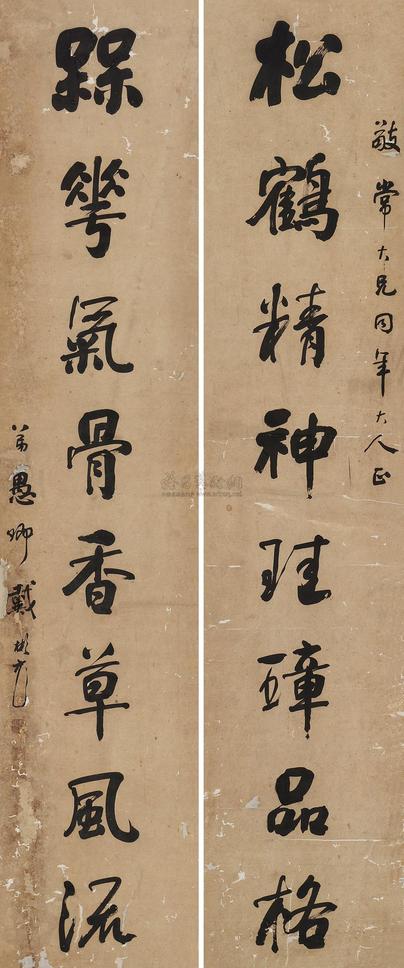 敬常大兄同年大人正
松鶴精神珪璋品格
槑花氣骨香草風流
弟愚卿戴彬元